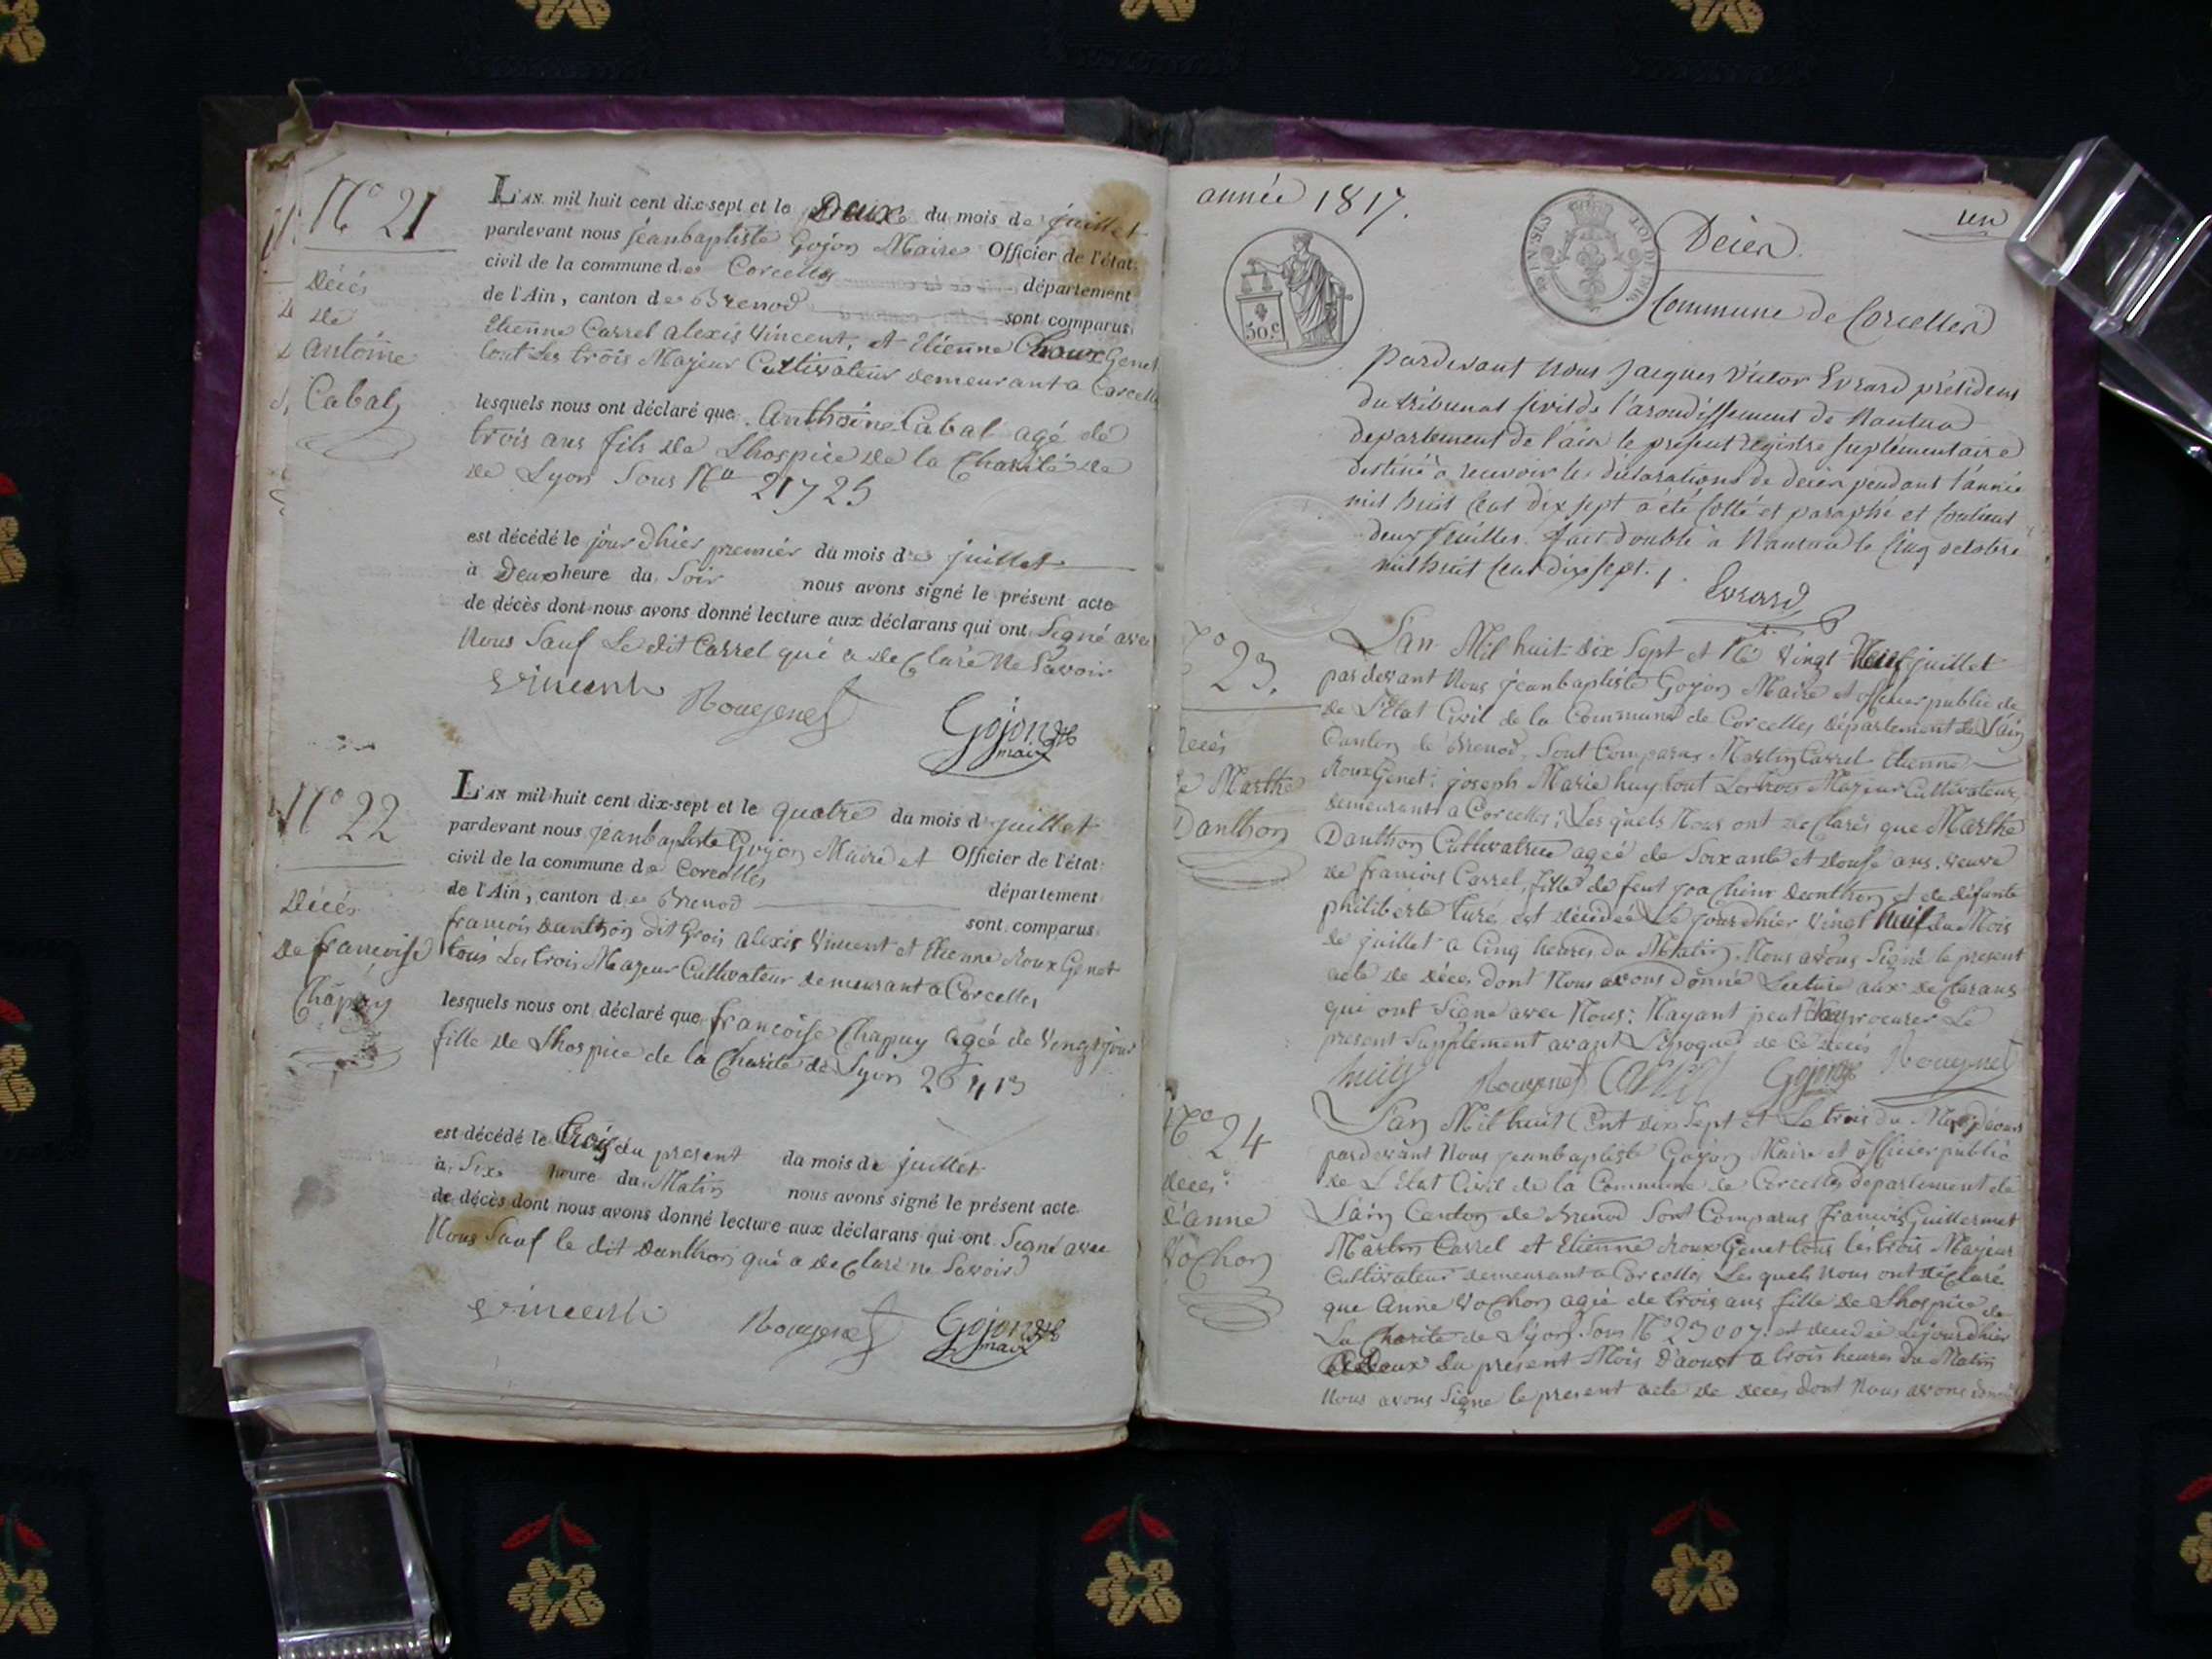 N.º 21
Décés
de
Antoine
Cabal
L'AN mil huit cent dix-sept et le Deux du mois de juillet
pardevant nous jeanbaptiste Gojon Maire Officier de l'état
civil de la commune de Corcelles département
de l'Ain, canton de Brenod sont comparus
Etienne Carrel alexis Vincent, et Etienne Roux Genet
tout Les trois Majeur Cultivateur demeurant a Corcelle
lesquels nous ont déclaré que Anthoine Cabal agé de
trois ans fils de Lhospice de la Charité de
de Lyon Sous Nº 21725
est décédé le jour dhier premier du mois de juillet
à Deux heure du Soir nous avons signé le présent acte
de décès dont nous avons donné lecture aux déclarans qui ont Signé avec
Nous Sauf Le dit Carrel qui a declaré Ne Savoir
Vincent Rougenet Gojon
maire
Nº 22
Décés
de francoise
Chapuy
L'AN mil huit cent dix-sept et le quatre du mois d juillet
pardevant nous jeanbaptiste Gojon Maire et Officier de l'état
civil de la commune de Corcelles
de l'Ain, canton de Brenod département
sont comparus
francois danthon dit Grois alexis Vincent et Etienne Roux Genet
tous Les trois Majeur Cultivateur demeurant a Corcelles
lesquels nous ont déclaré que francoise Chapuy agéé de Vingt jour
fille de Lhospice de la Charité de Lyon 26413
est décédé le trois du present du mois de juillet
à Six heure du Matin nous avons signé le présent acte
de décès dont nous avons donné lecture aux déclarans qui ont Signé avec
Nous Sauf le dit danthon qui a declaré ne Savoir
Vincent Rougenet Gojon
maire
année 1817.
50.c
LOI DE 1816
Décès un
Commune de Corcelles
Pardevant Nous Jacques Victor Evrard président
du tribunal Civil de l'arondissement de Nantua
departement de l'ain le present registre suplémentaire
destiné a recevoir les déclarations de décès pendant l'année
mil huit Cent dix sept a été Cotté et paraphé et Contient
deux feuilles. fait double a Nantua le Cinq octobre
mil huit Cent dix sept.
Evrard
Nº 23.
Décés
de Marthe
Danthon
L'an Mil huit dix Sept et le Vingt Neuf juillet
pardevant Nous jeanbaptiste Gojon Maire et officier public de
de L'Etat Civil de la Commune de Corcelles département de L'ain
Canton de Brenod. Sont Comparus Martin Carrel Etienne
Roux Genet; joseph Marie huy tout Les trois Majeur Cultivateur
demeurant a Corcelles; Les quels Nous ont declarés que Marthe
Danthon Cultivatrice agéé de Soixante et douse ans. veuve
de francois Carrel, fille de feut joachim danthon et de défunte
philiberte Curé est décédéé Le jour dhier Vingt huit du Mois
de juillet a Cinq heures du Matin. Nous avons Signé le present
acte de déces dont Nous avons donné Lecture aux declarans
qui ont Signe avec Nous: Nayant peut procurer Le
present Supplement avant L'Epoque de Ce décés
huiy Rougenet Carrel Gojon Rougenet
Nº 24
déces
d'anne
Vochon
L'an Mil huit Cent dix Sept et Le trois du Mois
pardevant Nous jeanbaptiste Gojon Maire et officier public
de L'Etat Civil de la Commune de Corcelles departement de
L'ain Canton de Brenod Sont Comparus francois Guillermet
Martin Carrel et Etienne Roux Genet tous les trois Majeur
Cultivateur demeurant a Corcelles Les quels Nous ont déclaré
que Anne Vochon agée de trois ans fille de Lhospice de
La Charite de Lyon. Sous Nº 23007. est décédéé Le jour dhier
Deux du present Mois D'aoust a trois heures du Matin
Nous avons Signe le present acte de deces dont Nous avons donné